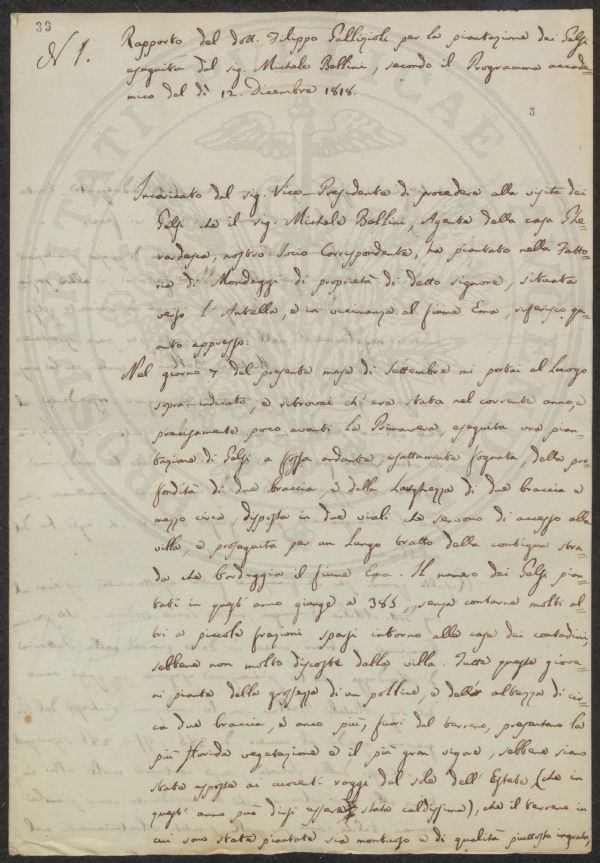 39
N 1.
Rapporto del dott. Filippo Gallizioli per la piantazione dei Gelsi
eseguita dal sig. Michele Bellini, secondo il Programma accade-
mico del dì 12. Dicembre 1818.
3
Incaricato dal sig. Vice-Presidente di procedere alla visita dei
Gelsi che il sig. Michele Bellini, Agente della casa Ghe-
rardesca, nostro Socio Corrispondente, ha piantato nella Fatto-
ria di Mondeggi di proprietà di detto signore, situata
verso l'Antella, e in vicinanza al fiume Ema, riferisco qu-
anto appresso:
Nel giorno 7 del presente mese di Settembre mi portai al Luogo
sopra-indicato, e ritrovai ch'era stata nel corrente anno, e
precisamente poco avanti la Primavera, eseguita una pian-
tazione di Gelsi a fossa andante esattamente fognata, della pro-
fondità di due braccia, e della Larghezza di due braccia e
mezzo circa disposta in due viali che servono di accesso alla
villa, e proseguita per un Lungo tratto della contigua stra-
da che bordeggia il fiume Ema. Il numero dei Gelsi pian-
tati in quest'anno giunge a 385, senza contarne molti al-
tri a piccole frazioni sparsi intorno alle case dei contadini,
sebbene non molto discoste dalla villa. Tutte queste giova-
ni piante della grossezza di un pollice, e dell' altezza di cir-
ca due braccia, e anco più, fuori del terreno, presentano la
più florida vegetazione e il più gran vigore, sebbene siano
state esposte ai cuocenti raggi del sole dell'Estate (che in
quest'anno può dirsi essere stata caldissima), che il terreno in
cui sono state piantate sia montuoso e di qualità piuttosto ingrata,